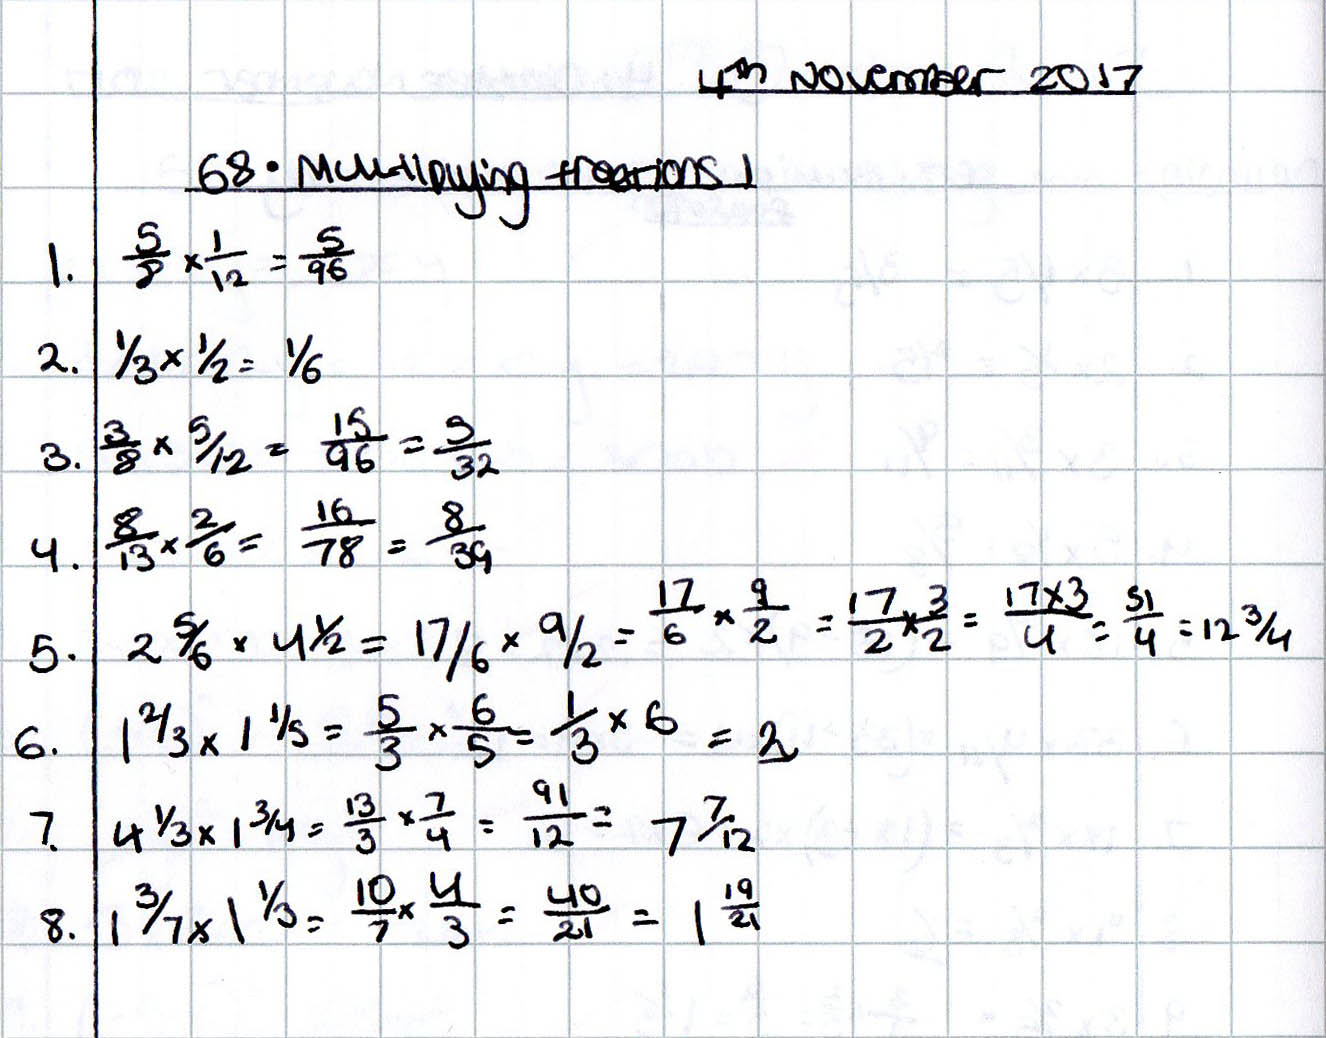 4th November 2017
68. Multiplying fractions 1
1. 5/8 × 1/12 = 5/96
2. 1/3 × 1/2 = 1/6
3. 3/8 × 5/12 = 15/96 = 5/32
4. 8/13 × 2/6 = 16/78 = 8/39
5. 2 5/6 × 4 1/2 = 17/6 × 9/2 = 17/6 × 9/2 = 17/2 × 3/2 = 17×3/4 = 51/4 = 12 3/4
6. 1 2/3 × 1 1/5 = 5/3 × 6/5 = 1/3 × 6 = 2
7. 4 1/3 × 1 3/4 = 13/3 × 7/4 = 91/12 = 7 7/12
8. 1 3/7 × 1 1/3 = 10/7 × 4/3 = 40/21 = 1 19/21